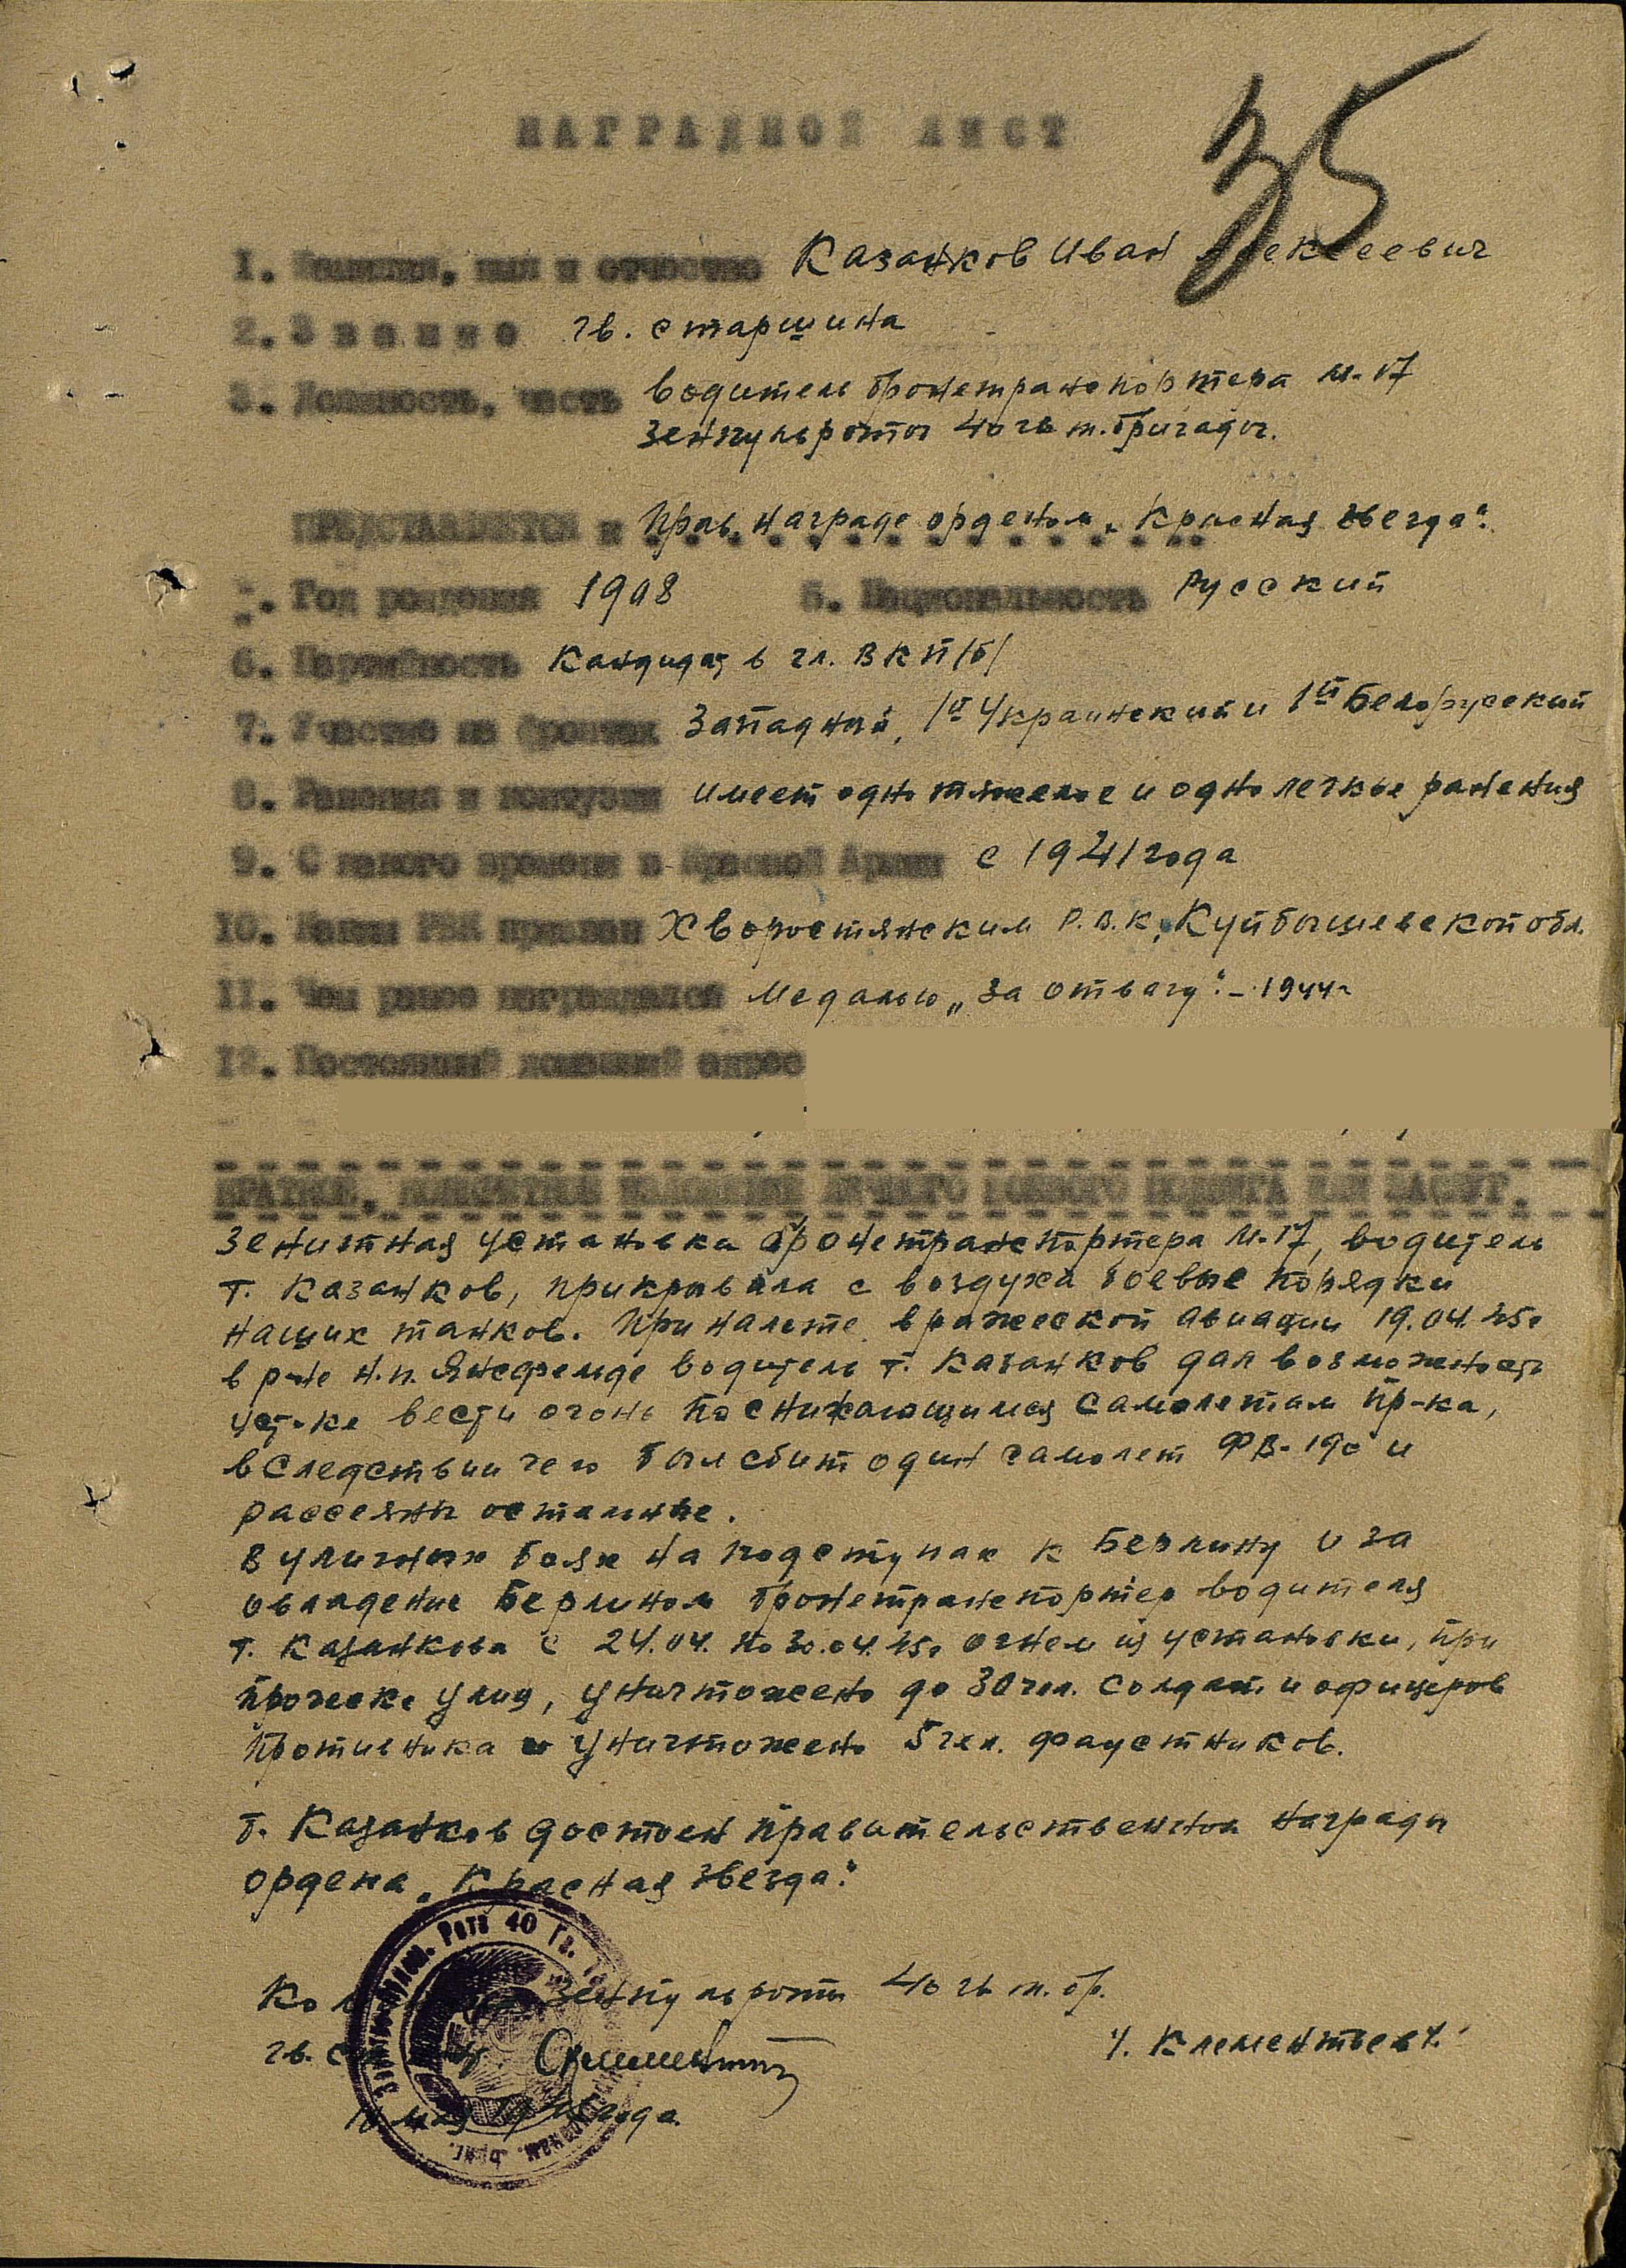 35
НАГРАДНОЙ ЛИСТ
1. Фамилия, имя и отчество Казанков Иван Алексеевич
2. Звание гв. старшина
3. Должность, часть водитель бронетранспортера М-17
зенпульроты 40 гв т. бригады.
ПРЕДСТАВЛЯЕТСЯ к Прав. награде орденом „Красная звезда".
4. Год рождения 1908 5. Национальность Русский
6. Партийность Кандидат в чл. ВКП/б/
7. Участие на фронтах Западный, 1й Украинский и 1й Белорусский
8. Ранения и контузии имеет одно тяжелое и одно легкое ранения
9. С какого времени в Красной Армии с 1941 года
10. Каким РВК призван Хворостянским Р.В.К. Куйбышевской обл.
11. Чем ранее награждался Медалью „За отвагу". - 1944г
12. Постоянный домашний адрес
КРАТКОЕ, КОНКРЕТНОЕ ИЗЛОЖЕНИЕ ЛИЧНОГО БОЕВОГО ПОДВИГА ИЛИ ЗАСЛУГ.
Зенитная установка бронетранспортера М-17, водитель
т. Казанков, прикрывала с воздуха боевые порядки
наших танков. При налете вражеской авиации 19.04.45г
в р-не н.п. водитель т. Казанков дал возможность
уст-ке вести огонь по снижающимся самолетам пр-ка,
вследствии чего был сбит один самолет ФВ-190 и
рассеяны остальные.
В уличных боях на подступах к Берлину и за
овладение Берлином бронетранспортер водителя
т. Казанкова с 24.04. по 30.04.45г огнем из установки, при
проческе улиц, уничтожено до 30 чел. солдат и офицеров
противника и уничтожено 5 чел. фаустников.
т. Казанков достоен правительственной награды
ордена „Красная звезда".
Командир Зенпульроты 40 гв т. бр.
гв. /. Клементьев/.
10 мая 1945 года.
Рота 40 Гв.